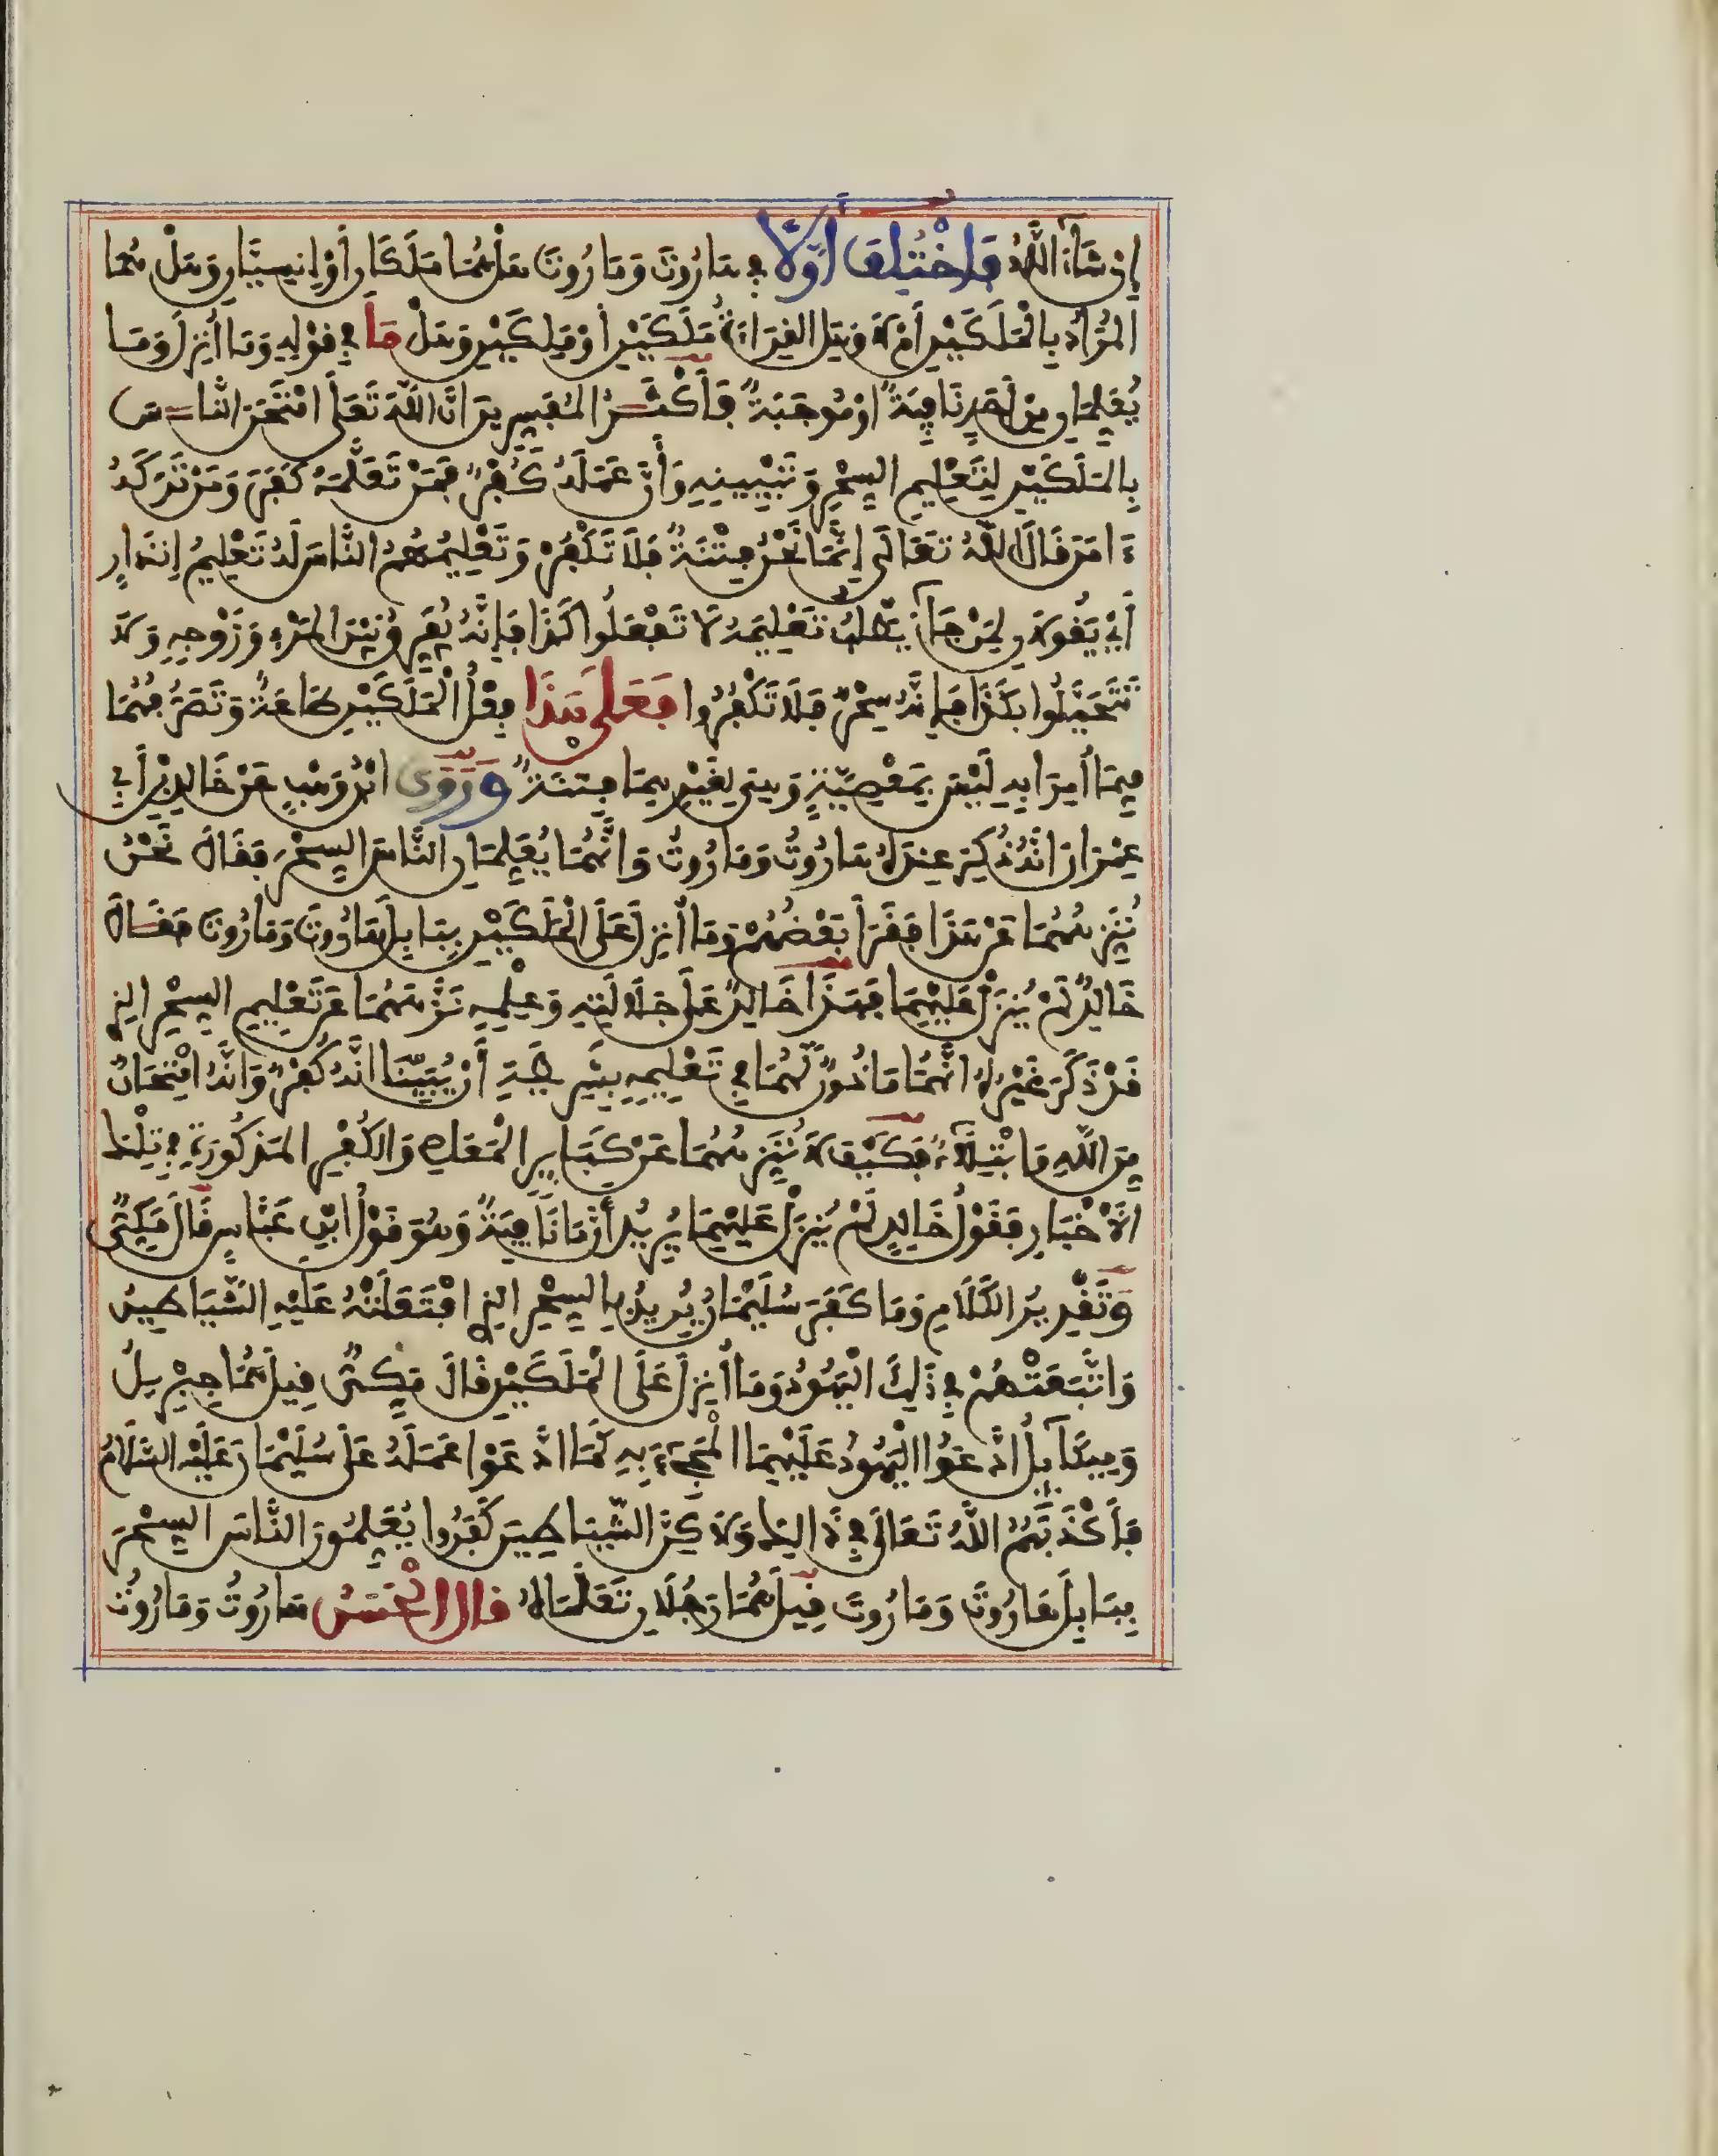 إِن شَاءَ اللَّهُ فَاخْتُلِفَ أَوَّلًا فِي هَارُوتَ وَمَارُوتَ هَلْ هُمَا مَلَكَانِ أَوْ إِنْسِيَّانِ وَهَلْ هُمَا
الْمُرَادُ بِالْمَلَكَيْنِ أَمْ لَا وَهَلِ الْقِرَاءَةُ مَلَكَيْنِ أَوْ مَلِكَيْنِ وَهَلْ مَا فِي قَوْلِهِ وَمَا أُنْزِلَ وَمَا
يُعَلِّمَانِ مِنْ أَحَدٍ نَافِيَةٌ أَوْ مُوجِبَةٌ فَأَكْثَرُ الْمُفَسِّرِينَ أَنَّ اللَّهَ تَعَلَى امْتَحَنَ النَّاسَ
بِالْمَلَكَيْنِ لِتَعْلِيمِ السِّحْرِ وَتَبْيِينِهِ وَأَنَّ عَمَلَهُ كُفْرٌ فَمَنْ تَعَلَّمَهُ كَفَرَ وَمَنْ تَرَكَهُ
ءَامَنَ قَالَ اللَّهُ تَعَالَى إِنَّمَا نَحْنُ فِتْنَةٌ فَلَا تَكْفُرْ وَتَعْلِيمُهُمُ النَّاسَ لَهُ تَعْلِيمُ إِنْذَارٍ
أَيْ يَقُولَانِ لِمَنْ جَاءَ يَطْلُبُ تَعْلِيمَهُ لَا تَفْعَلُوا كَذَا فَإِنَّهُ يُفَرِّقُ بَيْنَ الْمَرْءِ وَزَوْجِهِ وَلَا
تَتَحَيَّلُوا بِكَذَا فَإِنَّهُ سِحْرٌ فَلَا تَكْفُرُوا فَعَلَى هَذَا فِعْلُ الْمَلَكَيْنِ طَاعَةٌ وَتَصَرُّفُهُمَا
فِيمَا أُمِرَا بِهِ لَيْسَ بِمَعْصِيَةٍ وَهِيَ لِغَيْرِهِمَا فِتْنَةٌ وَرَوَى ابْنُ وَهْبٍ عَنْ خَالِدِ بْنِ أَبِي
عِمْرَانَ أَنَّهُ ذُكِرَ عِنْدَهُ هَارُوتُ وَمَارُوتُ وَأَنَّهُمَا يُعَلِّمَانِ النَّاسَ السِّحْرَ فَقَالَ نَحْنُ
نُنَزِّهُهُمَا عَنْ هَذَا فَقَرَأَ بَعْضُهُمْ وَمَا أُنْزِلَ عَلَى الْمَلَكَيْنِ بِبَابِلَ هَارُوتَ وَمَارُوتَ فَقَالَ
خَالِدٌ لَمْ يُنْزَلْ عَلَيْهِمَا فَهَذَا خَالِدٌ عَلَى جَلَالَتِهِ وَعِلْمِهِ نَزَّهَهُمَا عَنْ تَعْلِيمِ السِّحْرِ الذِي
قَدْ ذَكَرَ غَيْرُهُ أَنَّهُمَا مَاذُونٌ لَهُمَا فِي تَعْلِيمِهِ بِشَرِيطَةِ أَنْ يُبَيِّنَا أَنَّهُ كُفْرٌ وَأَنَّهُ امْتِحَانٌ
مِنَ اللَّهِ وَابْتِلَاءٌ فَكَيْفَ لَا نُنَزِّهُهُمَا عَنْ كَبَايِرِ الْمَعَاصِي وَالْكُفْرِ الْمَذْكُورَةِ فِي تِلْكَ
الْأَخْبَارِ فَقَوْلُ خَالِدٍ لَمْ يُنْزَلْ عَلَيْهِمَا يُرِيدُ أَنَّ مَا نَافِيَةٌ وَهُوَ قَوْلُ ابْنِ عَبَّاسٍ قَالَ مَكِّيٌّ
وَتَقْدِيرُ الْكَلَامِ وَمَا كَفَرَ سُلَيْمَانُ يُرِيدُ بِالسِّحْرِ الذِي افْتَعَلَتْهُ عَلَيْهِ الشَّيَاطِينُ
وَاتَّبَعَتْهُمْ فِي ذَلِكَ الْيَهُودُ وَمَا أُنْزِلَ عَلَى الْمَلَكَيْنِ قَالَ مَكِّيٌّ قِيلَ هُمَا جِبْرِيلُ
وَمِيكَايِلُ ادَّعَوُا الْيَهُودُ عَلَيْهِمَا الْمَجِيءَ بِهِ كَمَا ادَّعَوْا عَمَلَهُ عَلَى سُلَيْمَانَ عَلَيْهِ السَّلَامُ
فَأَكْذَبَهُمُ اللَّهُ تَعَالَى فِي ذَالِكَ وَلَاكِنَّ الشَّيَاطِينَ كَفَرُوا يُعَلِّمُونَ النَّاسَ السِّحْرَ
بِبَابِلَ هَارُوتَ وَمَارُوتَ قِيلَ هُمَا رَجُلَانِ تَعَلَّمَاهُ قَالَ الْحَسَنُ هَارُوتُ وَمَارُوتُ